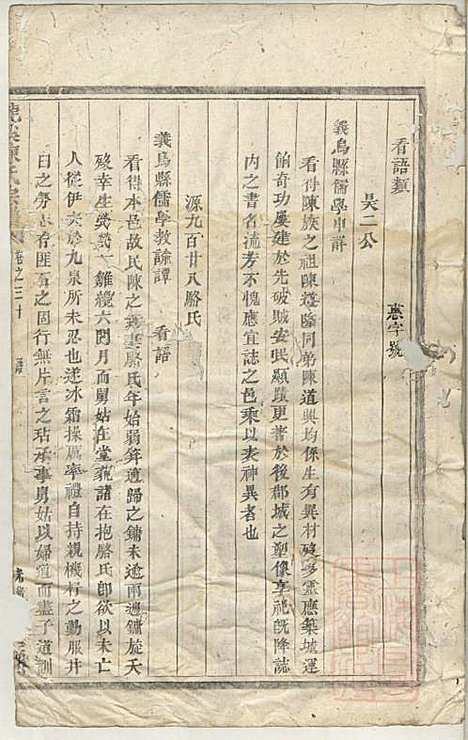 看語類
惠字號
吴二公
義烏縣儒學申詳
看得陳族之祖陳遂隆同弟陳道興均係生有異材殁多靈應築城運
餉奇功屡建於先破城安民顯蹟更著於後郡城之塑像享祀旣隆誌
內之書名流芳不愧應宜誌之邑乘以表神異者也
源九百廿八駱氏
義烏縣儒學教諭譚 看語
看得本邑故民陳之鏞妻駱氏年始弱笄適歸之鏞未逾兩週鏞旋夭
殁幸生煢煢一雛纔六閱月而舅姑在堂藐諸在抱駱氏卽欲以未亡
人從伊夫於九泉所未忍也遂冰霜操厲率禮自持親機杼之勤服井
臼之勞志脊匪石之固行無片言之玷承事舅姑以婦道而盡子道訓
陳氏宗譜
卷之三十